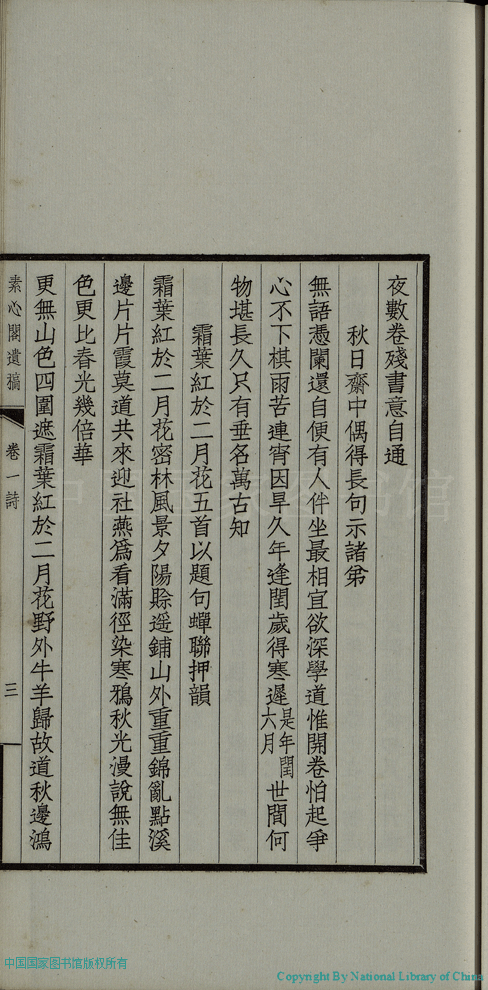 夜數卷殘書意自通
秋日齋中偶得長句示諸弟
無語憑闌還自便有人伴坐最相宜欲深學道惟開卷怕起爭
心不下棋雨苦連宵因早久年逢閏歲得寒遲是年閏六月世間何
物堪長久只有垂名萬古知
霜葉紅於二月花五首以題句蟬聯押韻
霜葉紅於二月花密林風景夕陽賒遥鋪山外重重錦亂點溪
邊片片霞莫道共來迎社燕爲看滿徑染寒鴉秋光漫說無佳
色更比春光幾倍華
更無山色四圍遮霜葉紅於二月花野外牛羊歸故道秋邊鴻
素心閣遺稿
卷一詩
三
中国国家图书馆
中国国家图书馆版权所有
Copyright By National Library of China